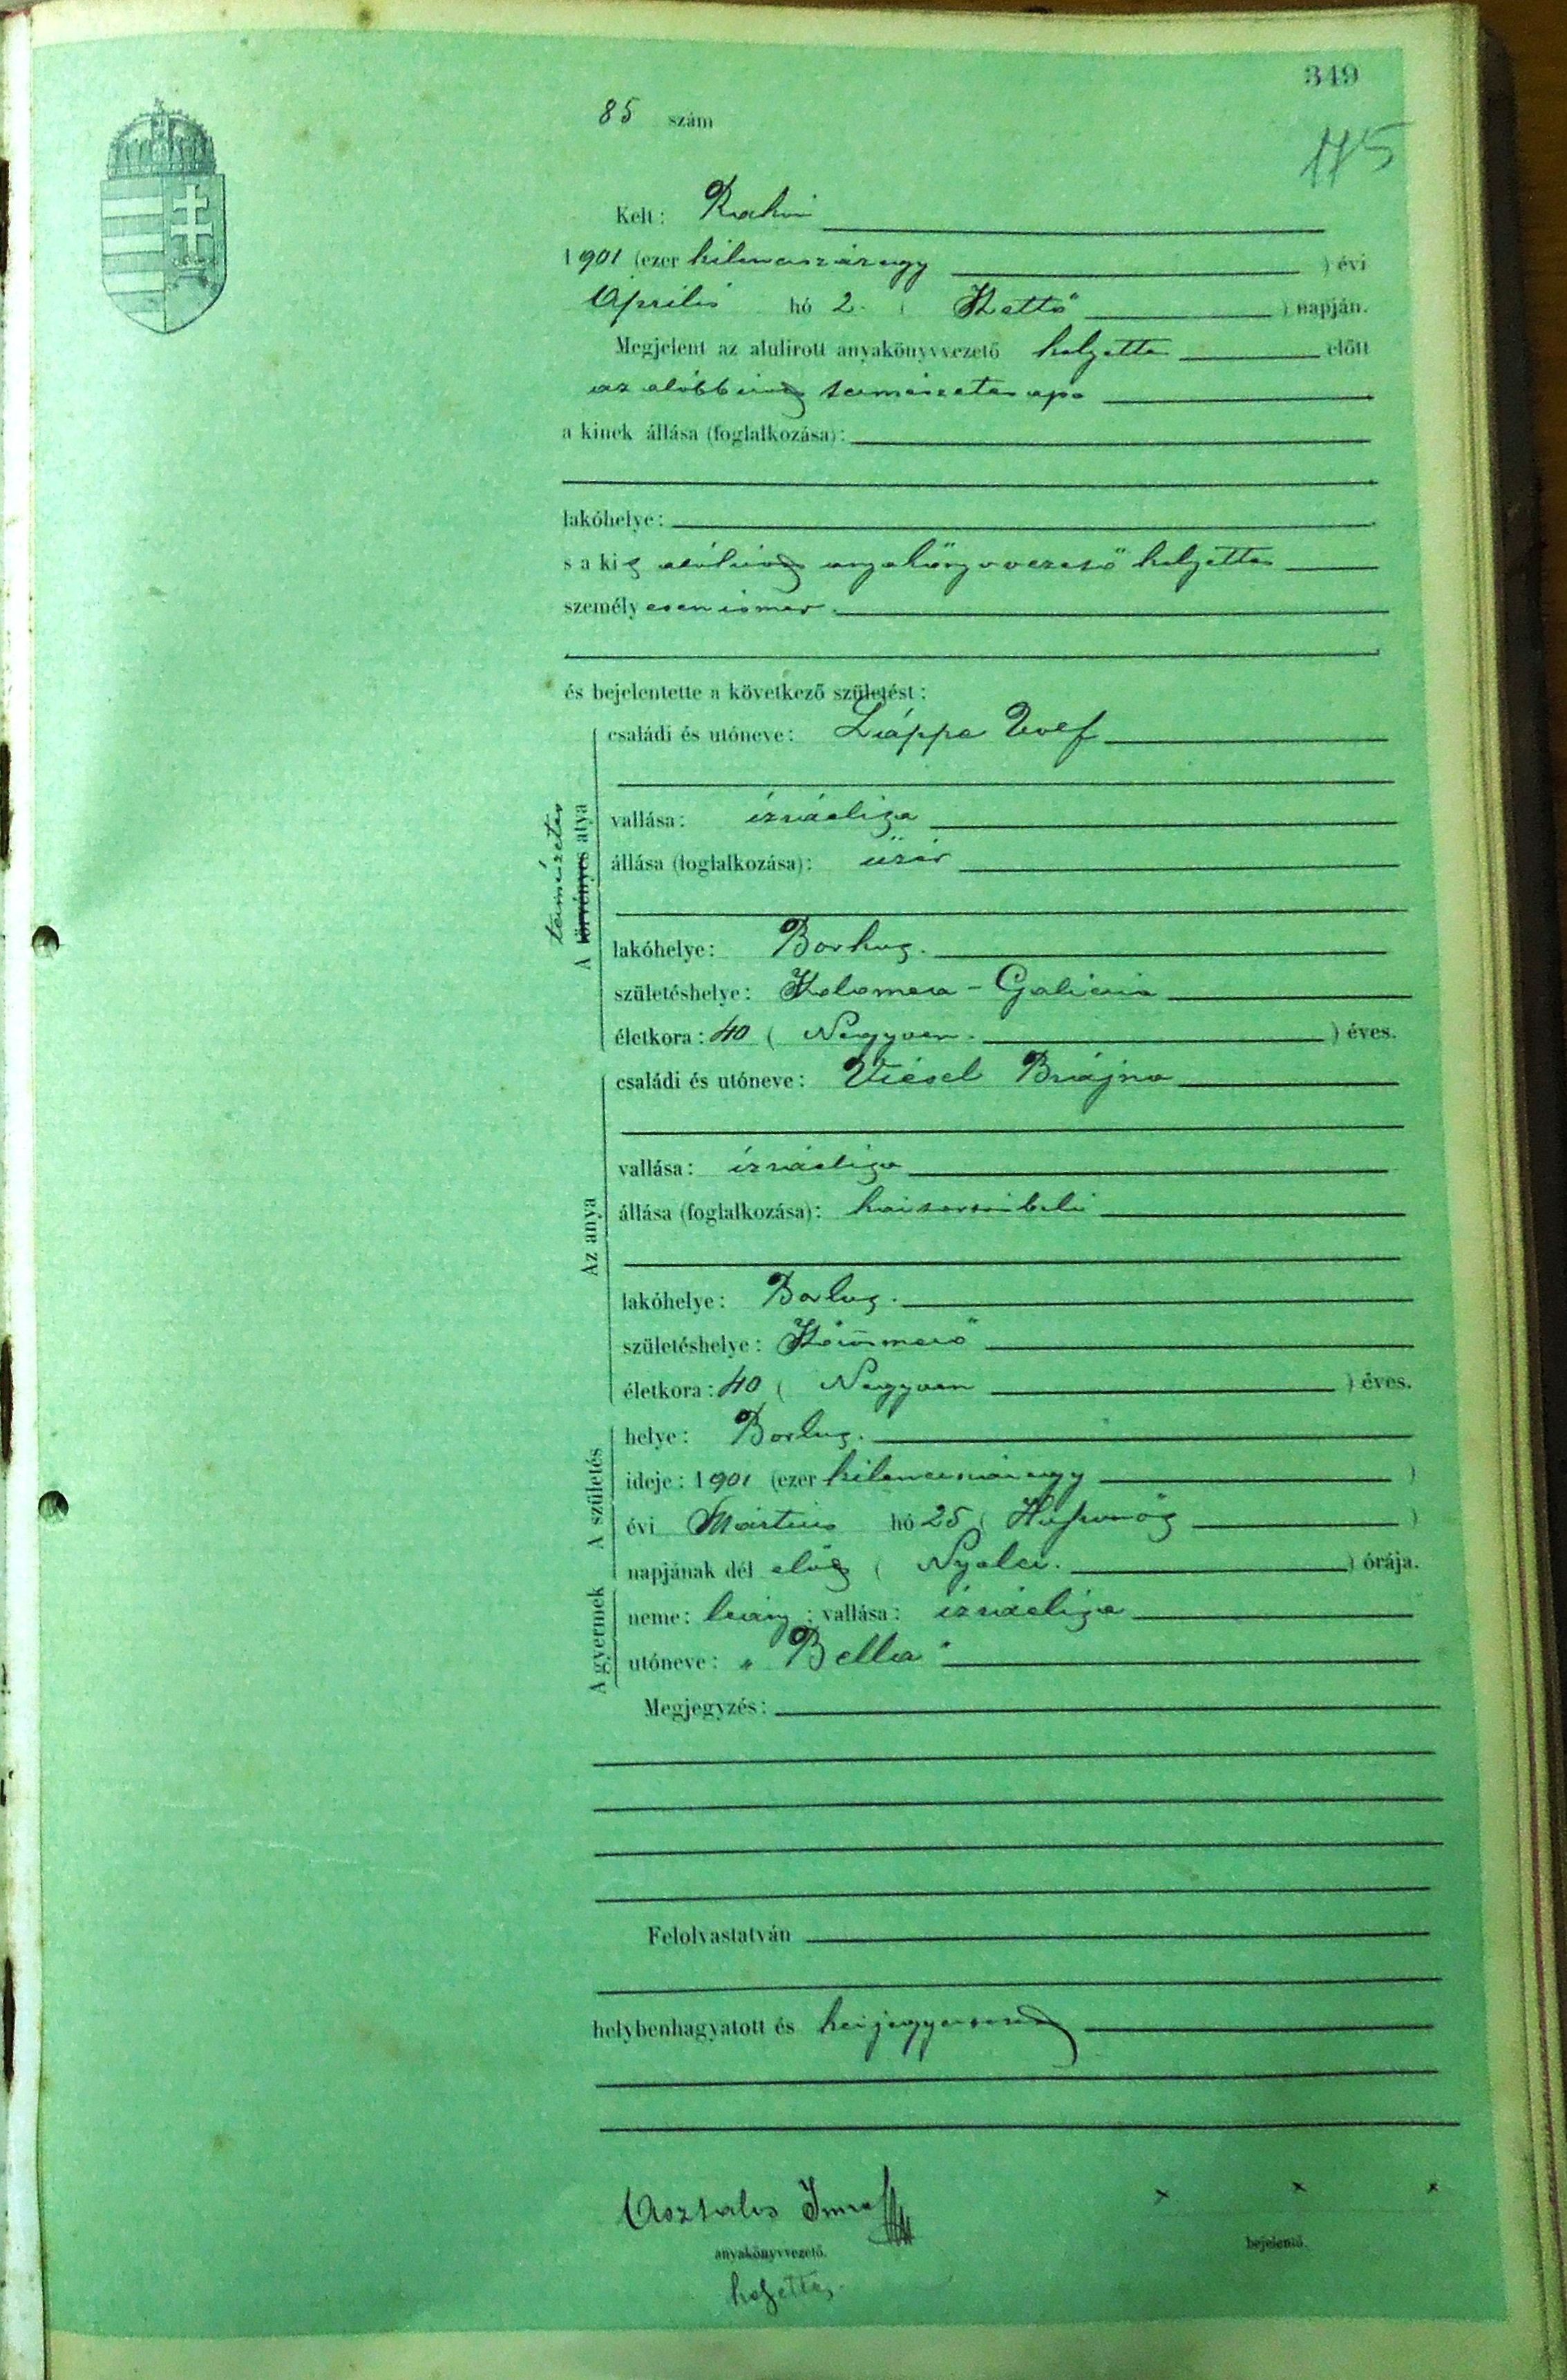 349
85 szám
175
Kelt: Rahó
1901 (ezer kilenczszázegy ) évi
Április hó 2. ( Kettő ) napján.
Megjelent az alulirott anyakönyvvezető helyettes előtt
az alább írt természetes apa
a kinek állása (foglalkozása):
lakóhelye:
s a kit alulírt anyakönyvvezető helyettes
személyesen ismer.
és bejelentette a következő születést:
természetes
A törvényes atya
családi és utóneve: Láppa Wolf
vallása: izraelita
állása (foglalkozása): üzér
lakóhelye: Borkut.
születéshelye: Kolomea - Galicia
életkora: 40 ( Negyven. ) éves.
Az anya
családi és utóneve: Viesel Brájna
vallása: izraelita
állása (foglalkozása): háztartásbeli
lakóhelye: Borkut.
születéshelye: Kőrösmező
életkora: 40 ( Negyven ) éves.
A születés
helye: Borkut.
ideje: 1901 (ezer kilenczszázegy )
évi Mártius hó 25 ( Huszonöt )
napjának dél előtt ( Nyolcz. ) órája.
A gyermek
neme: leány; vallása: izraelita
utóneve: „Bella"
Megjegyzés:
Felolvastatván
helybenhagyatott és kézjegyeztetett
Asztalos Imre
x x x
anyakönyvvezető.
bejelentő.
helyettes.